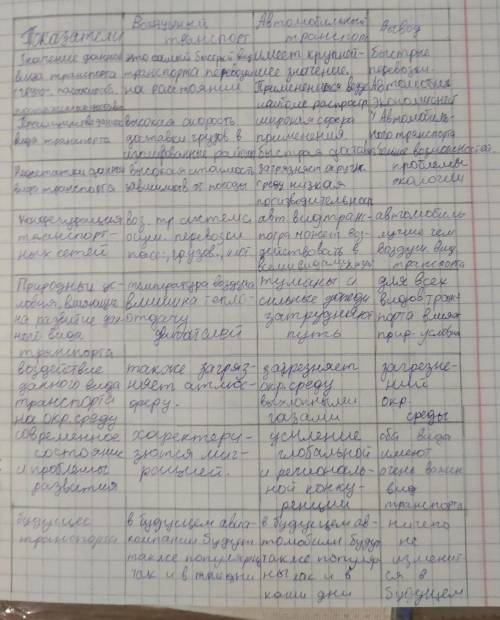 Показатели
Воздушный
транспорт
Автомобильный
транспорт
Вывод
Значение данного
вида транспорта
это самый быстрый вид
транспорта перевозки
на расстояние
имеет крупней-
шее значение.
быстрые
перевозки
вида транспорта
высокая скорость
доставки грузов в
широкая сфера
применения
быстрая доставка
экономичней
Автомобиль-
ного транспорта
больше возможностей
Недостатки данного
вида транспорта
высокая стоимость
зависимость от погоды
загрязняет окруж.
среду низкая
производительност
проблемы
экологии
конфегурацая
транспорт-
ных сетей
воз. тр. системс.
перевозки
пасс., грузов,
авт. вид тран-
действовать в
автомобиль
лучше чем
воздуш. вид
транспорта
Природные ус-
ловия, влияющие
на развитие дан-
ного вида
транспорта
температура воздуха
тепло-
отдачу
двигателей
туманы и
сильные дожди
затрудняют
путь
для всех
видов транс-
порта влияют
прир. условия
воздействие
данного вида
транспорта
на окр. среду
также загряз-
няет атмос-
феру.
загрезняет
окр. среду
выхлопными
газами
загрезне-
ний
окр.
среды
современное
состояние
и проблемы
развития
характери-
зуются миг-
рацией.
усиление
глобальной
и региональ-
ной конку-
ренции
оба вида
имеют
очень важн
вид
транспорта
будущее
транспорта
в будущем авиа-
компании будут
также популярны
как и в
в будущем ав-
томобили будут
также популяр
ны как и в
наши дни
ничего
не
изменит
ся в
будущем